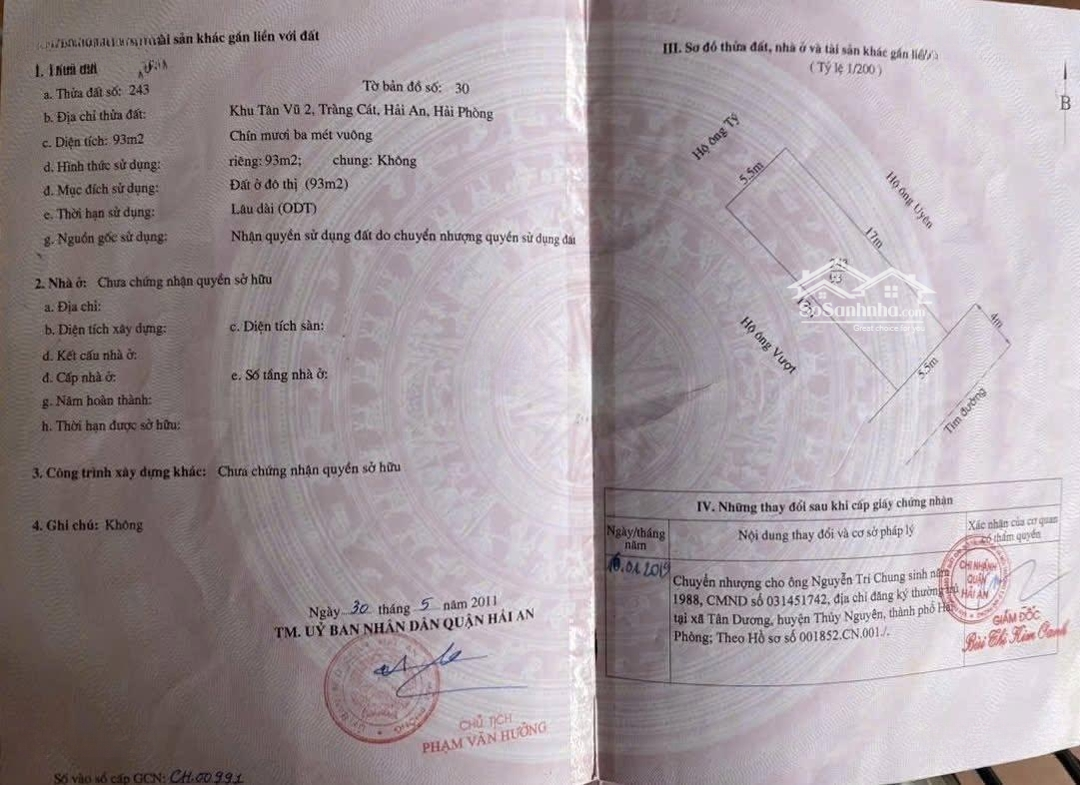 tài sản khác gắn liền với đất
1. Thửa đất
a. Thửa đất số: 243
Tờ bản đồ số: 30
b. Địa chỉ thửa đất:
Khu Tân Vũ 2, Tràng Cát, Hải An, Hải Phòng
c. Diện tích: 93m2
Chín mươi ba mét vuông
d. Hình thức sử dụng:
riêng: 93m2; chung: Không
đ. Mục đích sử dụng:
Đất ở đô thị (93m2)
e. Thời hạn sử dụng:
Lâu dài (ODT)
g. Nguồn gốc sử dụng:
Nhận quyền sử dụng đất do chuyển nhượng quyền sử dụng đất
2. Nhà ở: Chưa chứng nhận quyền sở hữu
a. Địa chỉ:
b. Diện tích xây dựng:
c. Diện tích sàn:
d. Kết cấu nhà ở:
đ. Cấp nhà ở:
e. Số tầng nhà ở:
g. Năm hoàn thành:
h. Thời hạn được sở hữu:
3. Công trình xây dựng khác: Chưa chứng nhận quyền sở hữu
4. Ghi chú: Không
Ngày 30 tháng 5 năm 2011
TM. UỶ BAN NHÂN DÂN QUẬN HẢI AN
CHỦ TỊCH
PHẠM VĂN HƯỞNG
Số vào sổ cấp GCN: CH.00991
III. Sơ đồ thửa đất, nhà ở và tài sản khác gắn liền
(Tỷ lệ 1/200)
B
Hộ ông Tý
5.5m
Hộ ông Uyên
17m
243
93
17m
SoSanhnha.com
Great choice for you
Hộ ông Vượt
4m
5.5m
Tim đường
IV. Những thay đổi sau khi cấp giấy chứng nhận
Ngày/tháng
năm
Nội dung thay đổi và cơ sở pháp lý
Xác nhận của cơ quan
có thẩm quyền
16.01.2019
Chuyển nhượng cho ông Nguyễn Tri Chung sinh năm
1988, CMND số 031451742, địa chỉ đăng ký thường trú
tại xã Tân Dương, huyện Thủy Nguyên, thành phố Hải
Phòng; Theo Hồ sơ số 001852.CN.001./.
CHI NHÁNH
QUẬN
HẢI AN
GIÁM ĐỐC
Bùi Thị Kim Oanh